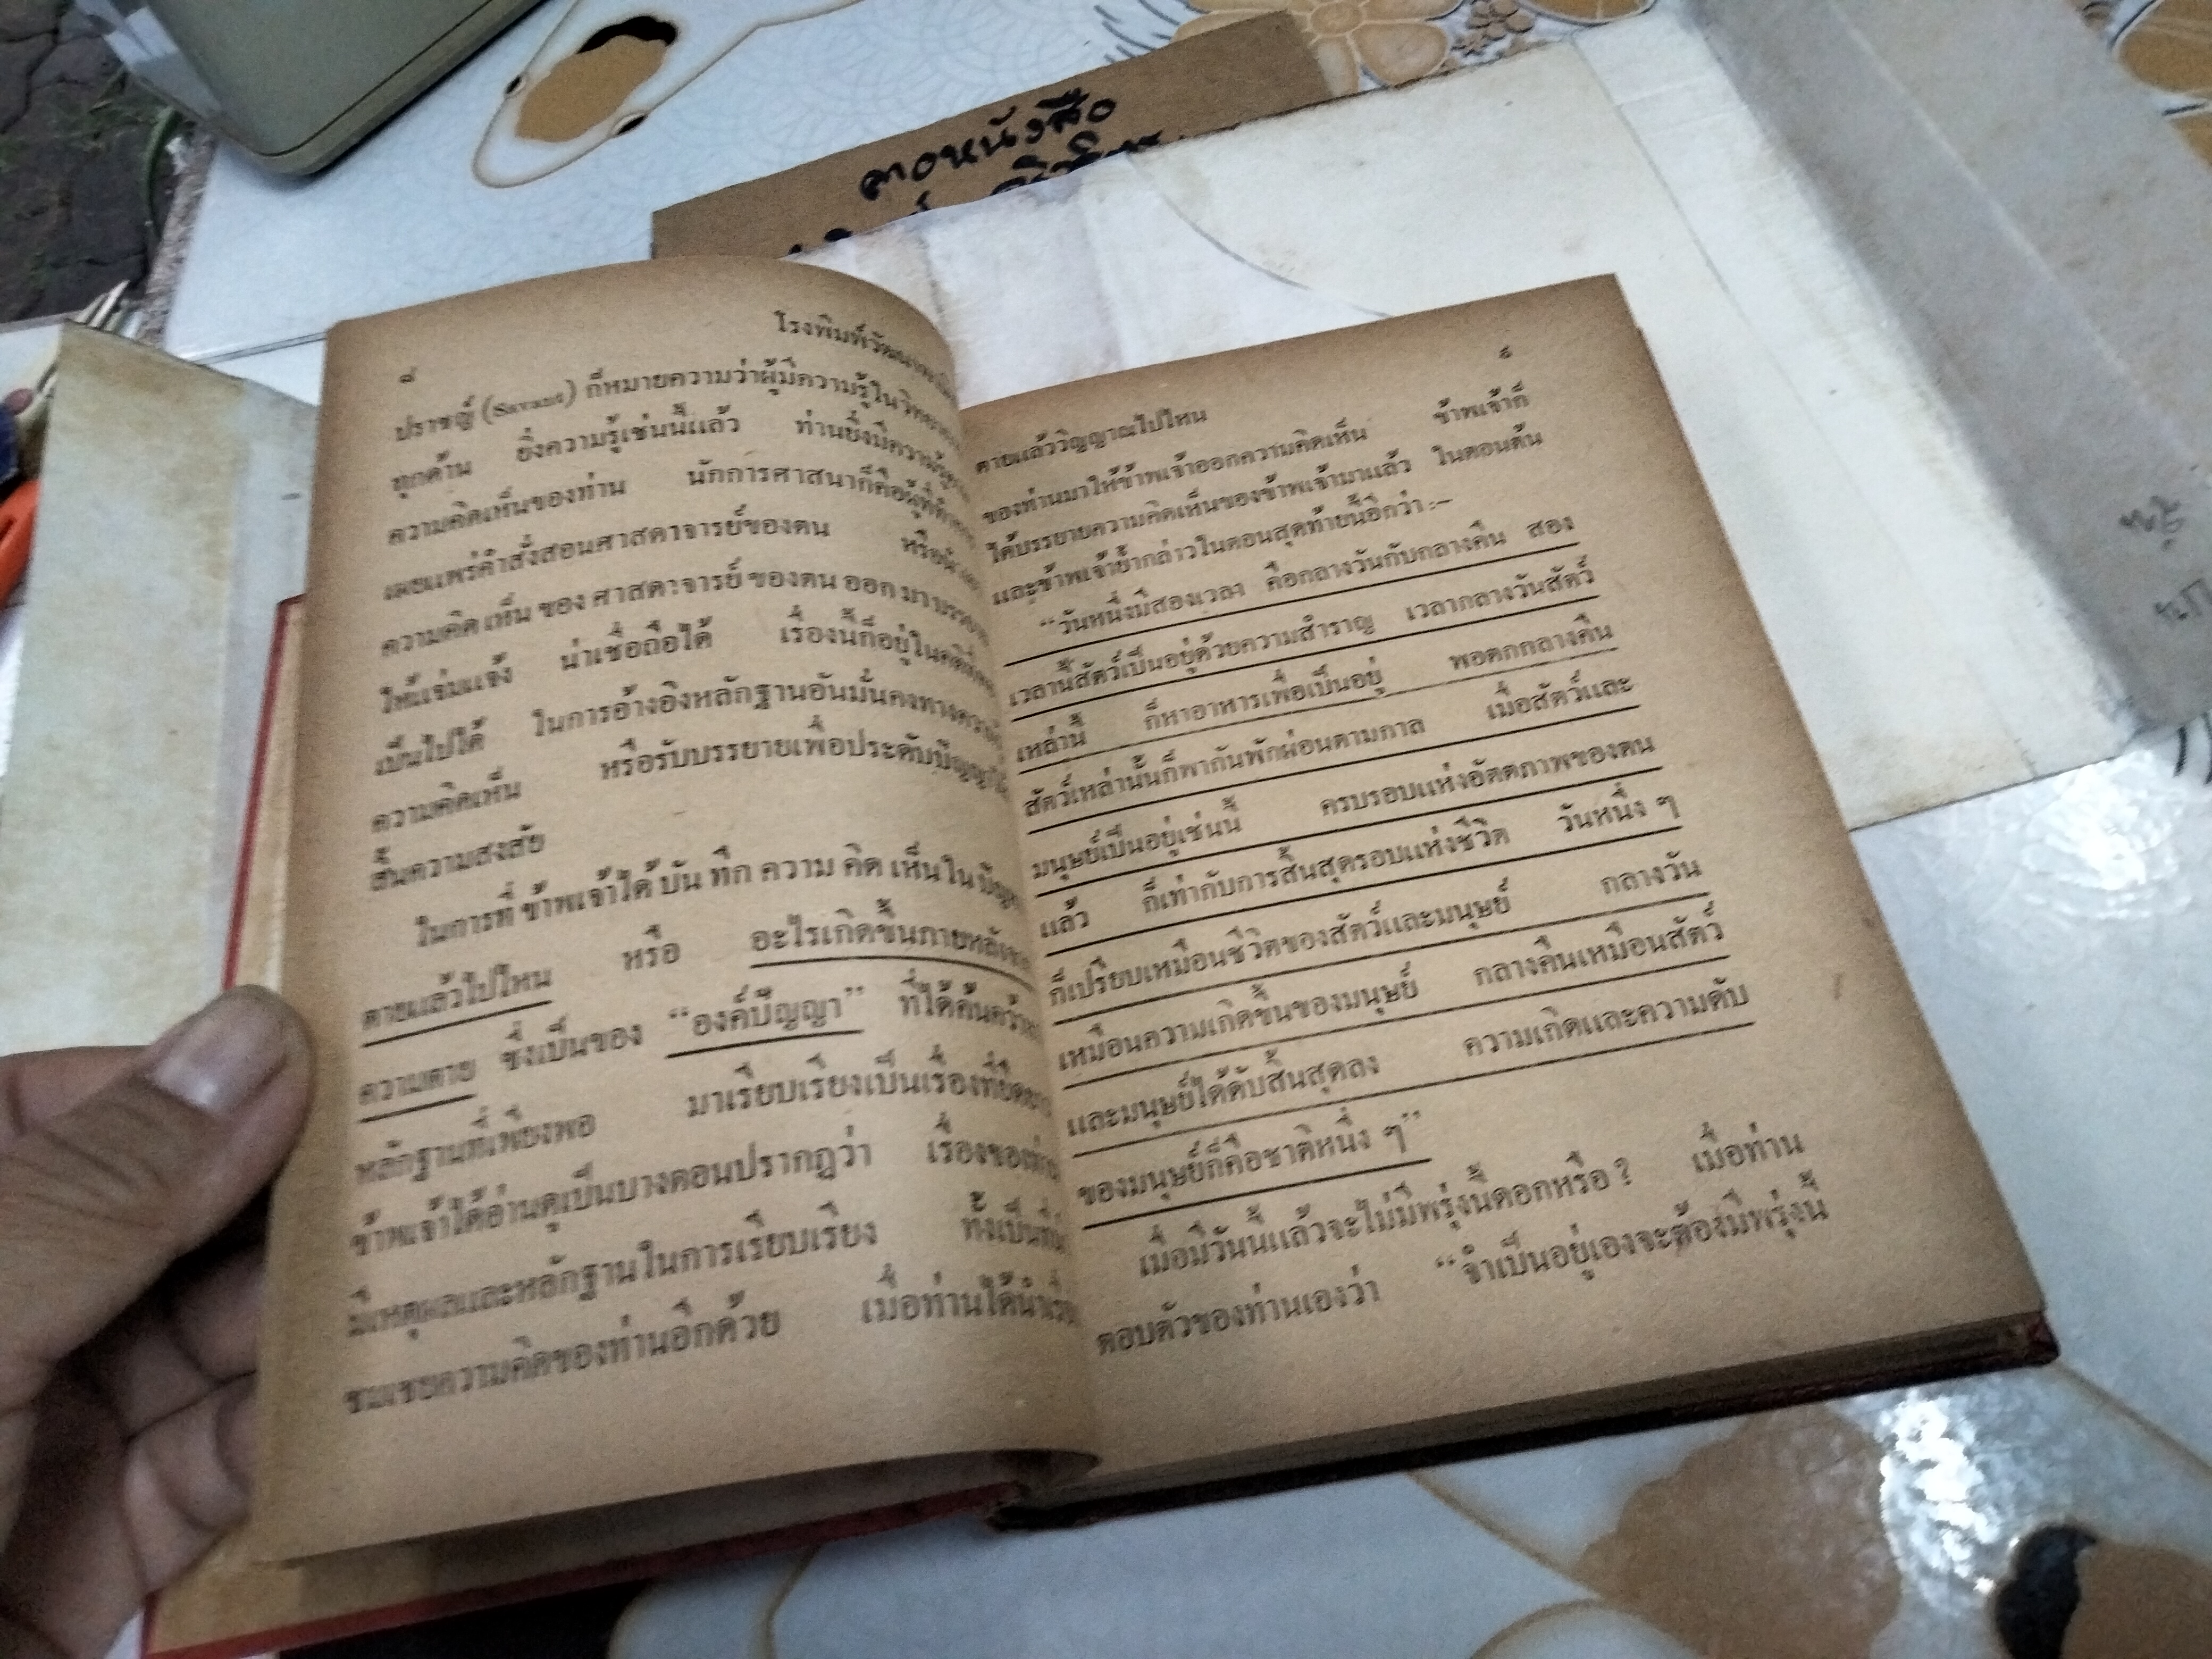 ลางหนังสือ
๘
โรงพิมพ์วัฒนา
ปราชญ์ (Savant) ก็หมายความว่าผู้มีความรู้ใน
ทุกด้าน ยิ่งความรู้เช่นนี้แล้ว ท่านยิ่งมีความ
ความคิดเห็นของท่าน นักการศาสนาก็คือผู้ที่
เผยแพร่คำสั่งสอนศาสดาจารย์ของตน หรือ
ความคิดเห็น ของ ศาสดาจารย์ ของตน ออก มา
ให้แจ่มแจ้ง น่าเชื่อถือได้ เรื่องนี้ก็อยู่ใน
เป็นไปได้ ในการอ้างอิงหลักฐานอันมั่นคงทาง
ความคิดเห็น หรือรับบรรยายเพื่อประดับปัญญา
สิ้นความสงสัย
ในการที่ ข้าพเจ้าได้ บัน ทึก ความ คิด เห็นใน
ตายแล้วไปไหน หรือ อะไรเกิดขึ้นภายหลัง
ความตาย ซึ่งเป็นของ “องค์ปัญญา” ที่ได้ค้นคว้า
หลักฐานที่เพียงพอ มาเรียบเรียงเป็นเรื่องที่
ข้าพเจ้าได้อ่านดูเป็นบางตอนปรากฏว่า เรื่องของท่าน
มีเหตุผลและหลักฐานในการเรียบเรียง ทั้งเป็นที่
ชมเชยความคิดของท่านอีกด้วย เมื่อท่านได้นำเรื่อง
๙
ตายแล้ววิญญาณไปไหน
ของท่านมาให้ข้าพเจ้าออกความคิดเห็น ข้าพเจ้าก็
ได้บรรยายความคิดเห็นของข้าพเจ้ามาแล้ว ในตอนต้น
และข้าพเจ้าย้ำกล่าวในตอนสุดท้ายนี้อีกว่า:–
“วันหนึ่งมีสองเวลา คือกลางวันกับกลางคืน สอง
เวลานี้สัตว์เป็นอยู่ด้วยความสำราญ เวลากลางวันสัตว์
เหล่านี้ ก็หาอาหารเพื่อเป็นอยู่ พอตกกลางคืน
สัตว์เหล่านั้นก็พากันพักผ่อนตามกาล เมื่อสัตว์และ
มนุษย์เป็นอยู่เช่นนี้ ครบรอบแห่งอัตตภาพของตน
แล้ว ก็เท่ากับการสิ้นสุดรอบแห่งชีวิต วันหนึ่ง ๆ
ก็เปรียบเหมือนชีวิตของสัตว์และมนุษย์ กลางวัน
เหมือนความเกิดขึ้นของมนุษย์ กลางคืนเหมือนสัตว์
และมนุษย์ได้ดับสิ้นสุดลง ความเกิดและความดับ
ของมนุษย์ก็คือชาติหนึ่ง ๆ”
เมื่อมีวันนี้แล้วจะไม่มีพรุ่งนี้ดอกหรือ? เมื่อท่าน
ตอบตัวของท่านเองว่า “จำเป็นอยู่เองจะต้องมีพรุ่งนี้